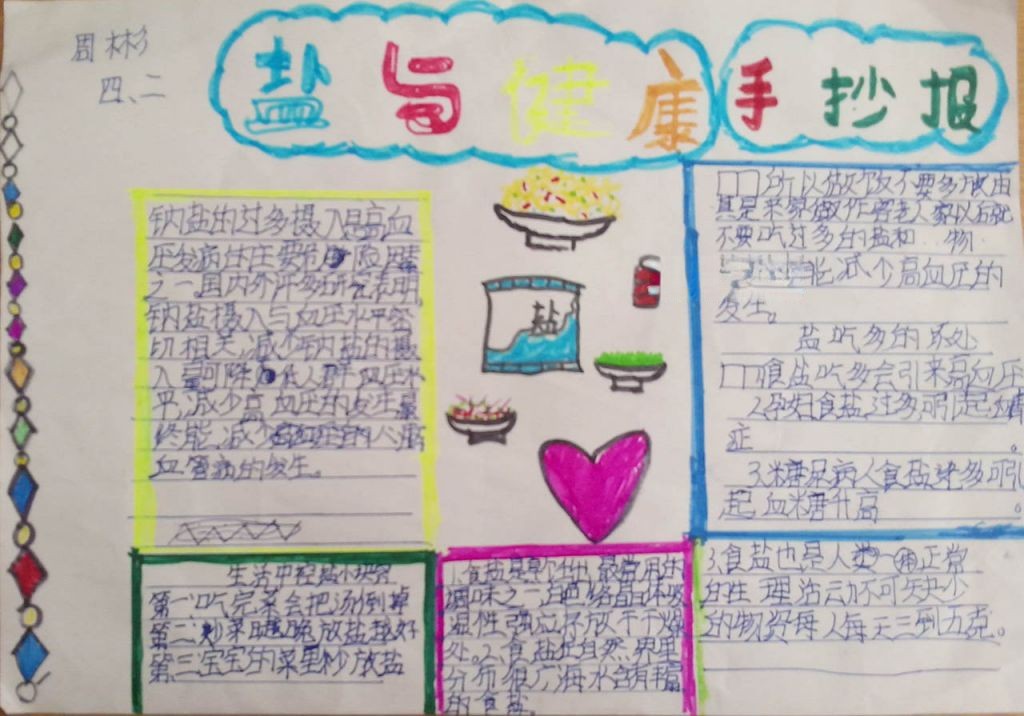 周彬
四、二
盐与健康手抄报
钠盐的过多摄入是高血
压发病的主要
之一国内外许多研究表明,
钠盐摄入与血压水平密
切相关,减少钠盐的摄
入量可降低人群血压水
平,减少高血压的发生最
终能减少
血管病的发生。
盐
所以做饭不要多放
不要吃过多的盐和 物
能减少高血压的
发生。
盐吃多的坏处
食盐吃多会引来高血压
2.孕妇食盐过多引起
症。
3.糖尿病人食盐过多可引
起血糖升高。
生活中控盐小
第一:吃完菜会把汤倒掉
第二:炒菜越晚放盐越好
第三:宝宝的菜里少放盐
1.食盐是 最常用的
调味之一白色
湿性强应存放干干燥
处。2.食盐在自然界里
分布很广海水含有丰富
的食盐。
3.食盐也是人类 正常
的生理活动不可缺少
的物资每人每天三到五克。